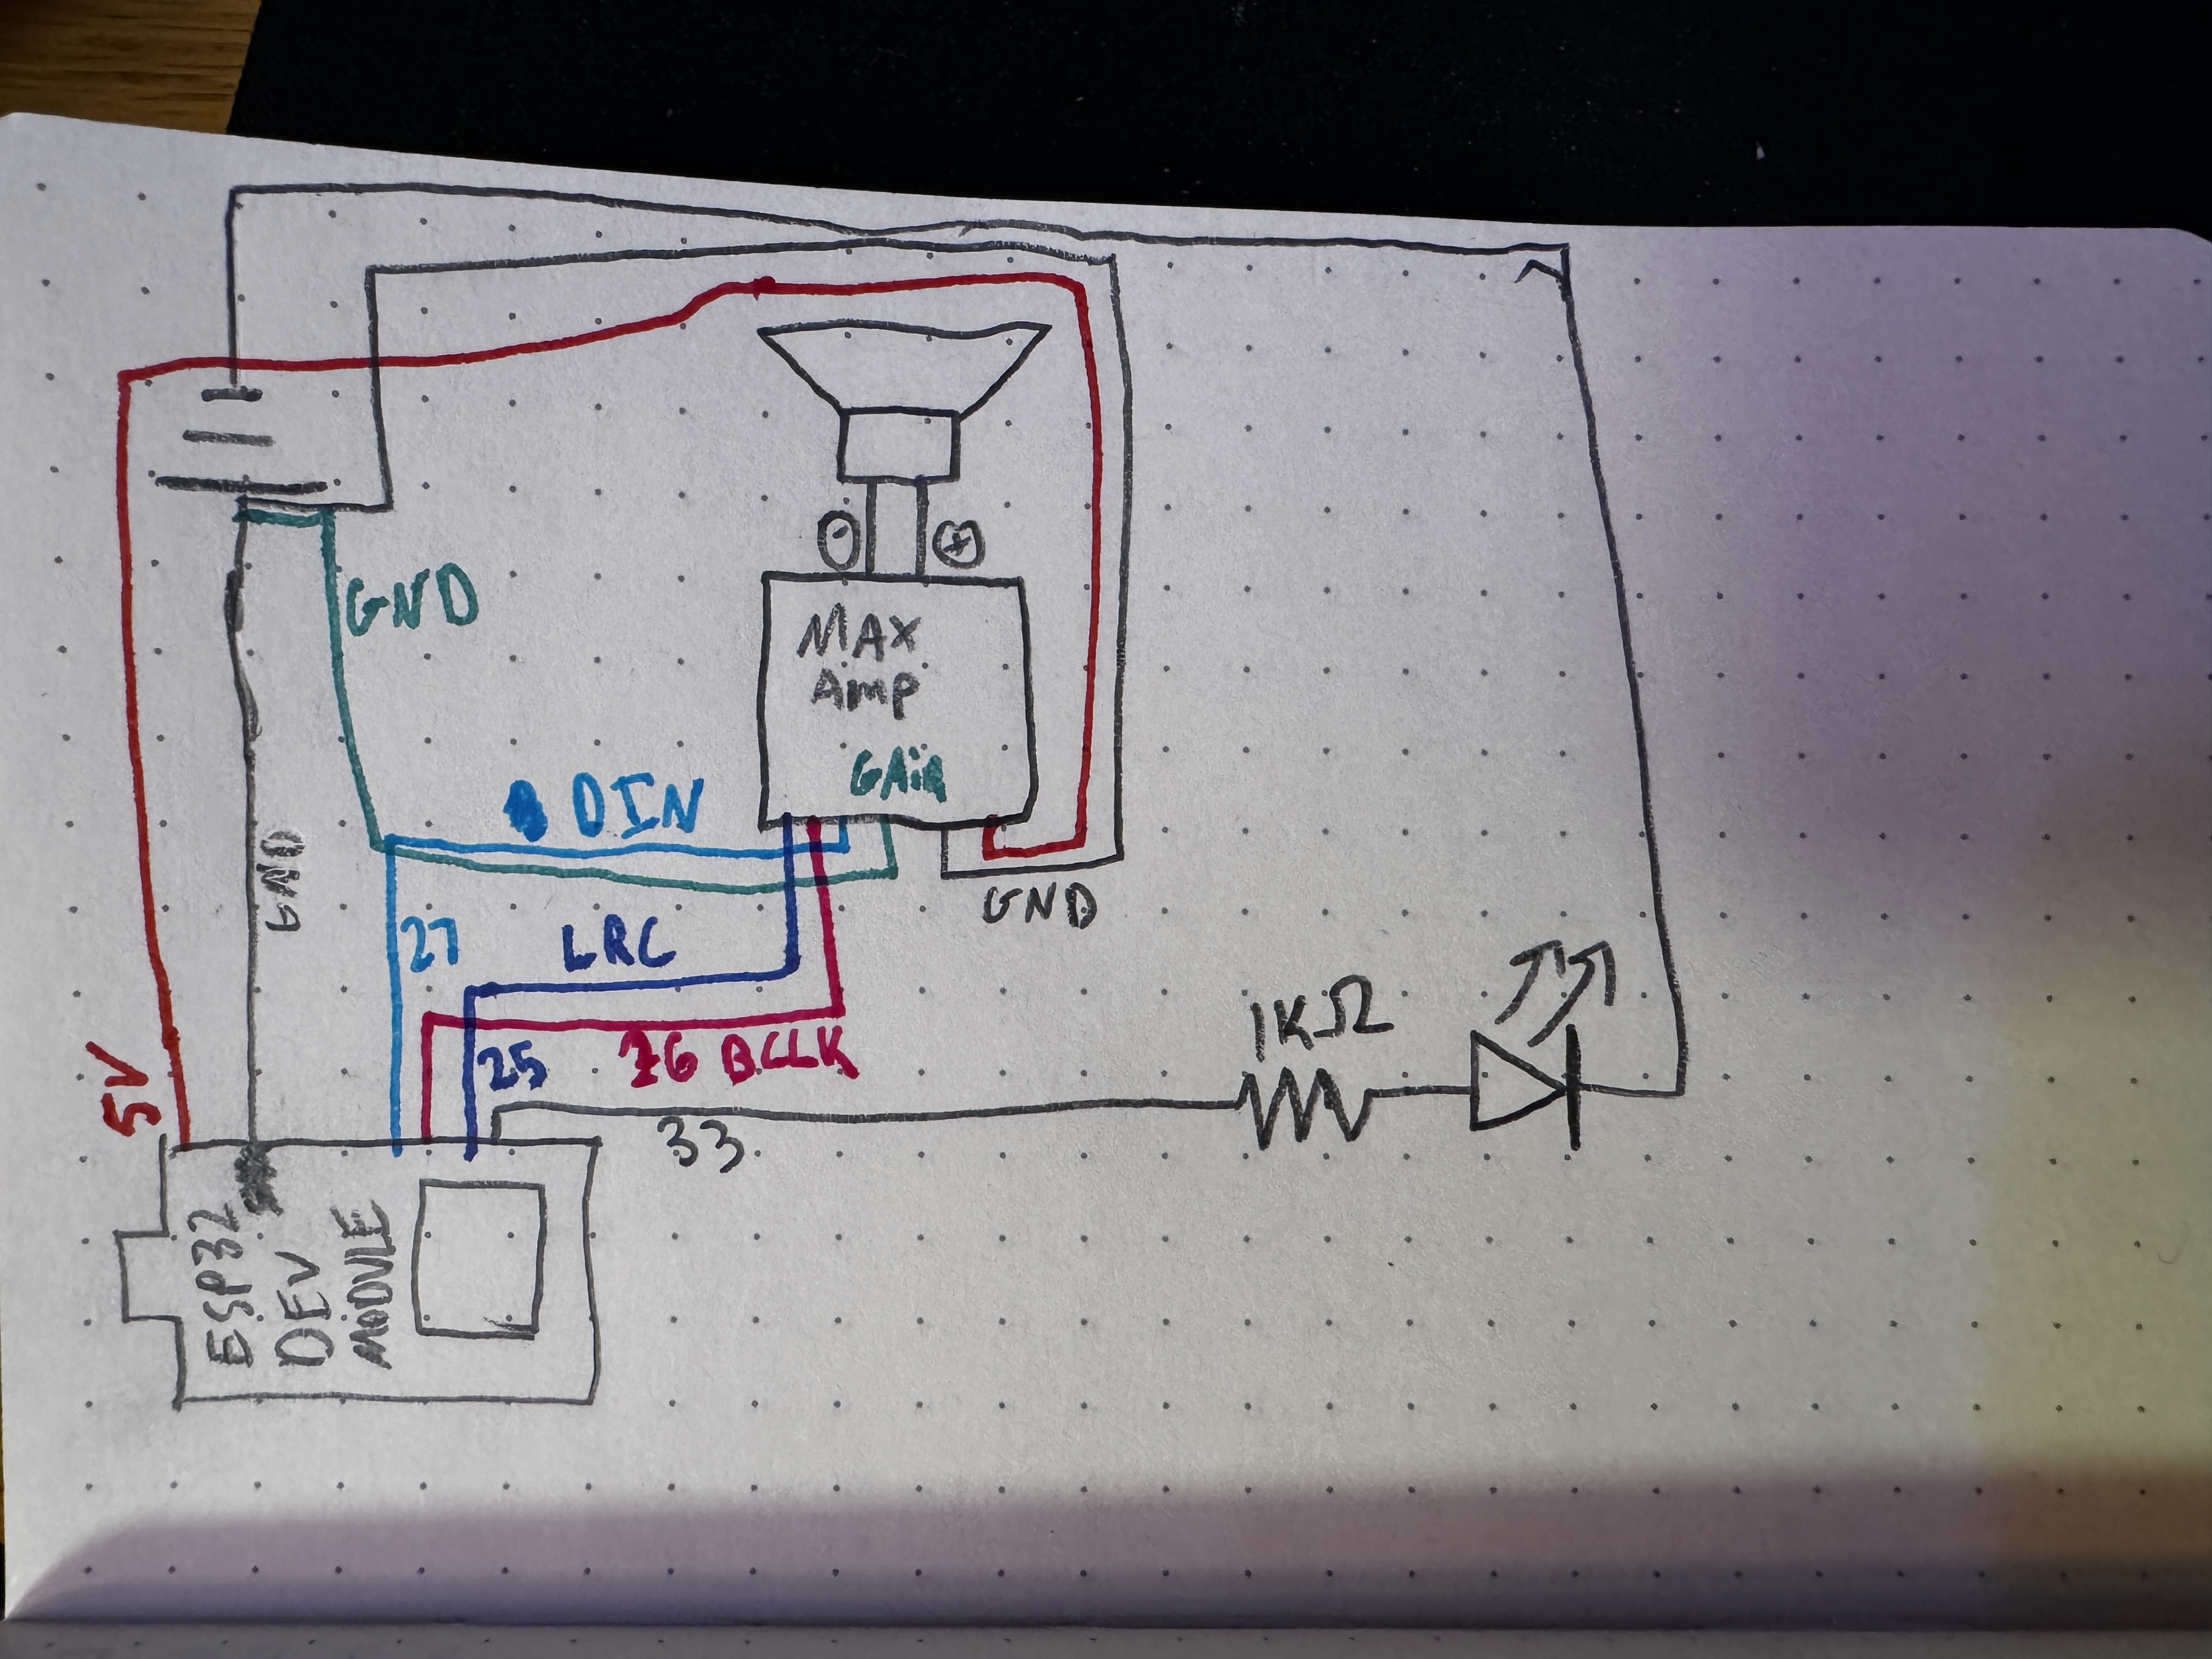 GND
MAX
Amp
GAiN
DIN
GND
GND
27
LRC
1KΩ
5V
25
26 BCLK
33
ESP32
DEV
MODULE